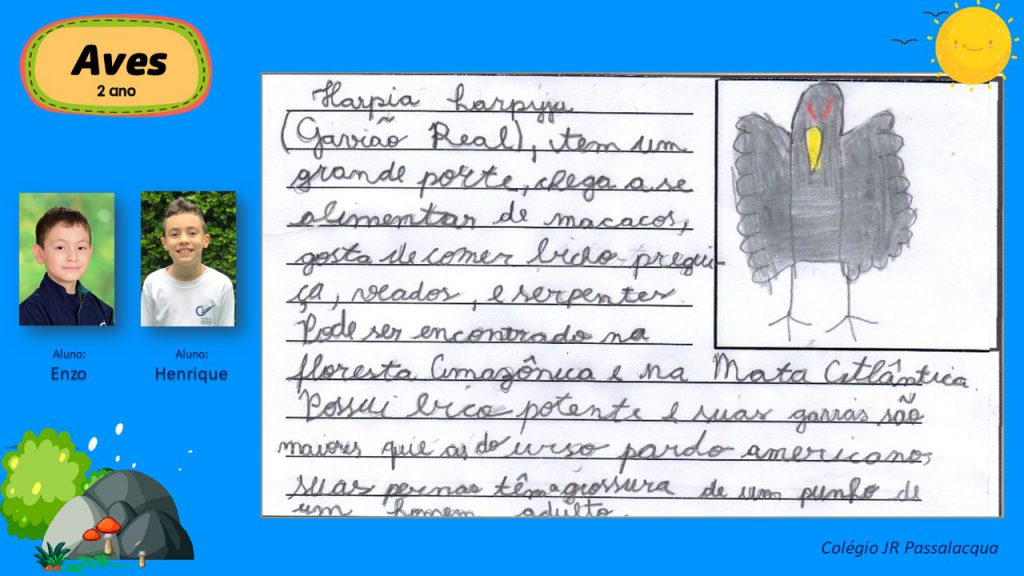 Aves
2 ano
Harpia harpyja
(Gavião Real), tem um
grande porte, chega a se
alimentar de macacos,
gosta de comer bicho-pregui-
ça, veados, e serpentes.
Pode ser encontrado na
floresta Amazônica e na Mata Atlântica.
Possui bico potente e suas garras são
maiores que as do urso pardo americano,
suas pernas têm a grossura de um punho de
um homem adulto.
Aluno:
Enzo
Aluno:
Henrique
Colégio JR Passalacqua